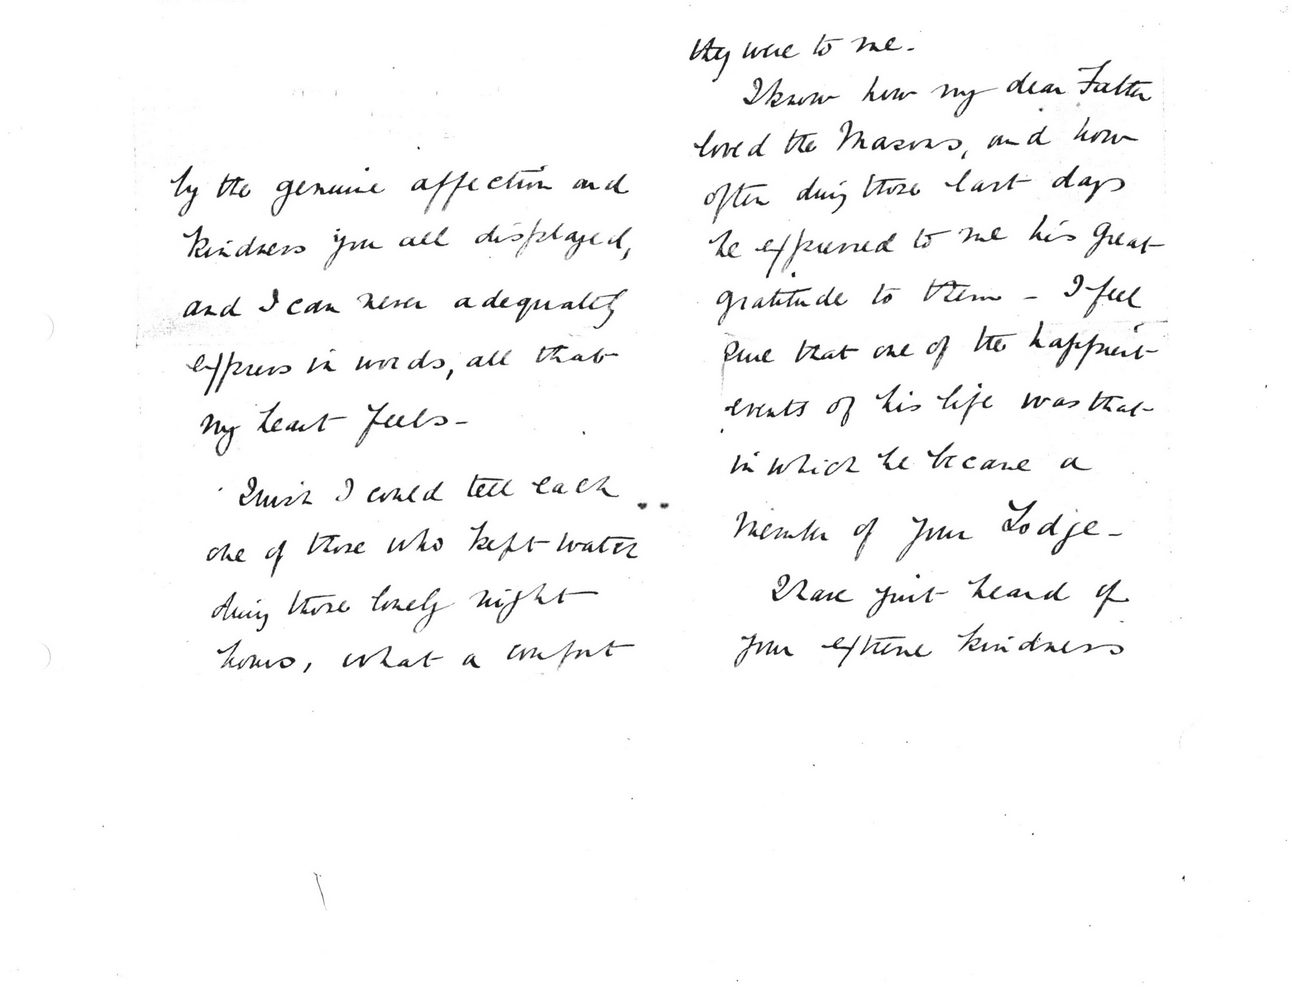 by the genuine affection and
kindness you all displayed,
and I can never adequately
express in words, all that
my heart feels -
I wish I could tell each
one of those who kept watch
during those lonely night
hours, what a comfort
they were to me.
I know how my dear Father
loved the Masons, and how
often during those last days
he expressed to me his great
gratitude to them - I feel
sure that one of the happiest
events of his life was that
in which he became a
Member of your Lodge -
I have just heard of
your extreme kindness